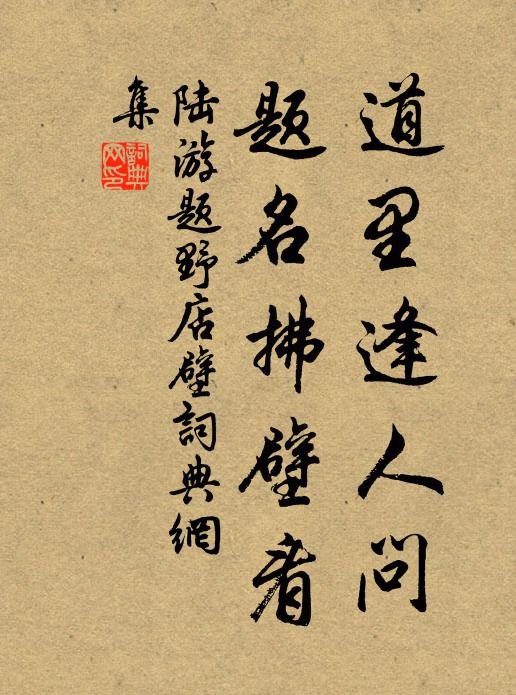 道里逢人问
题名拂壁看
陆游题野店壁詞典網
集
詞典網印